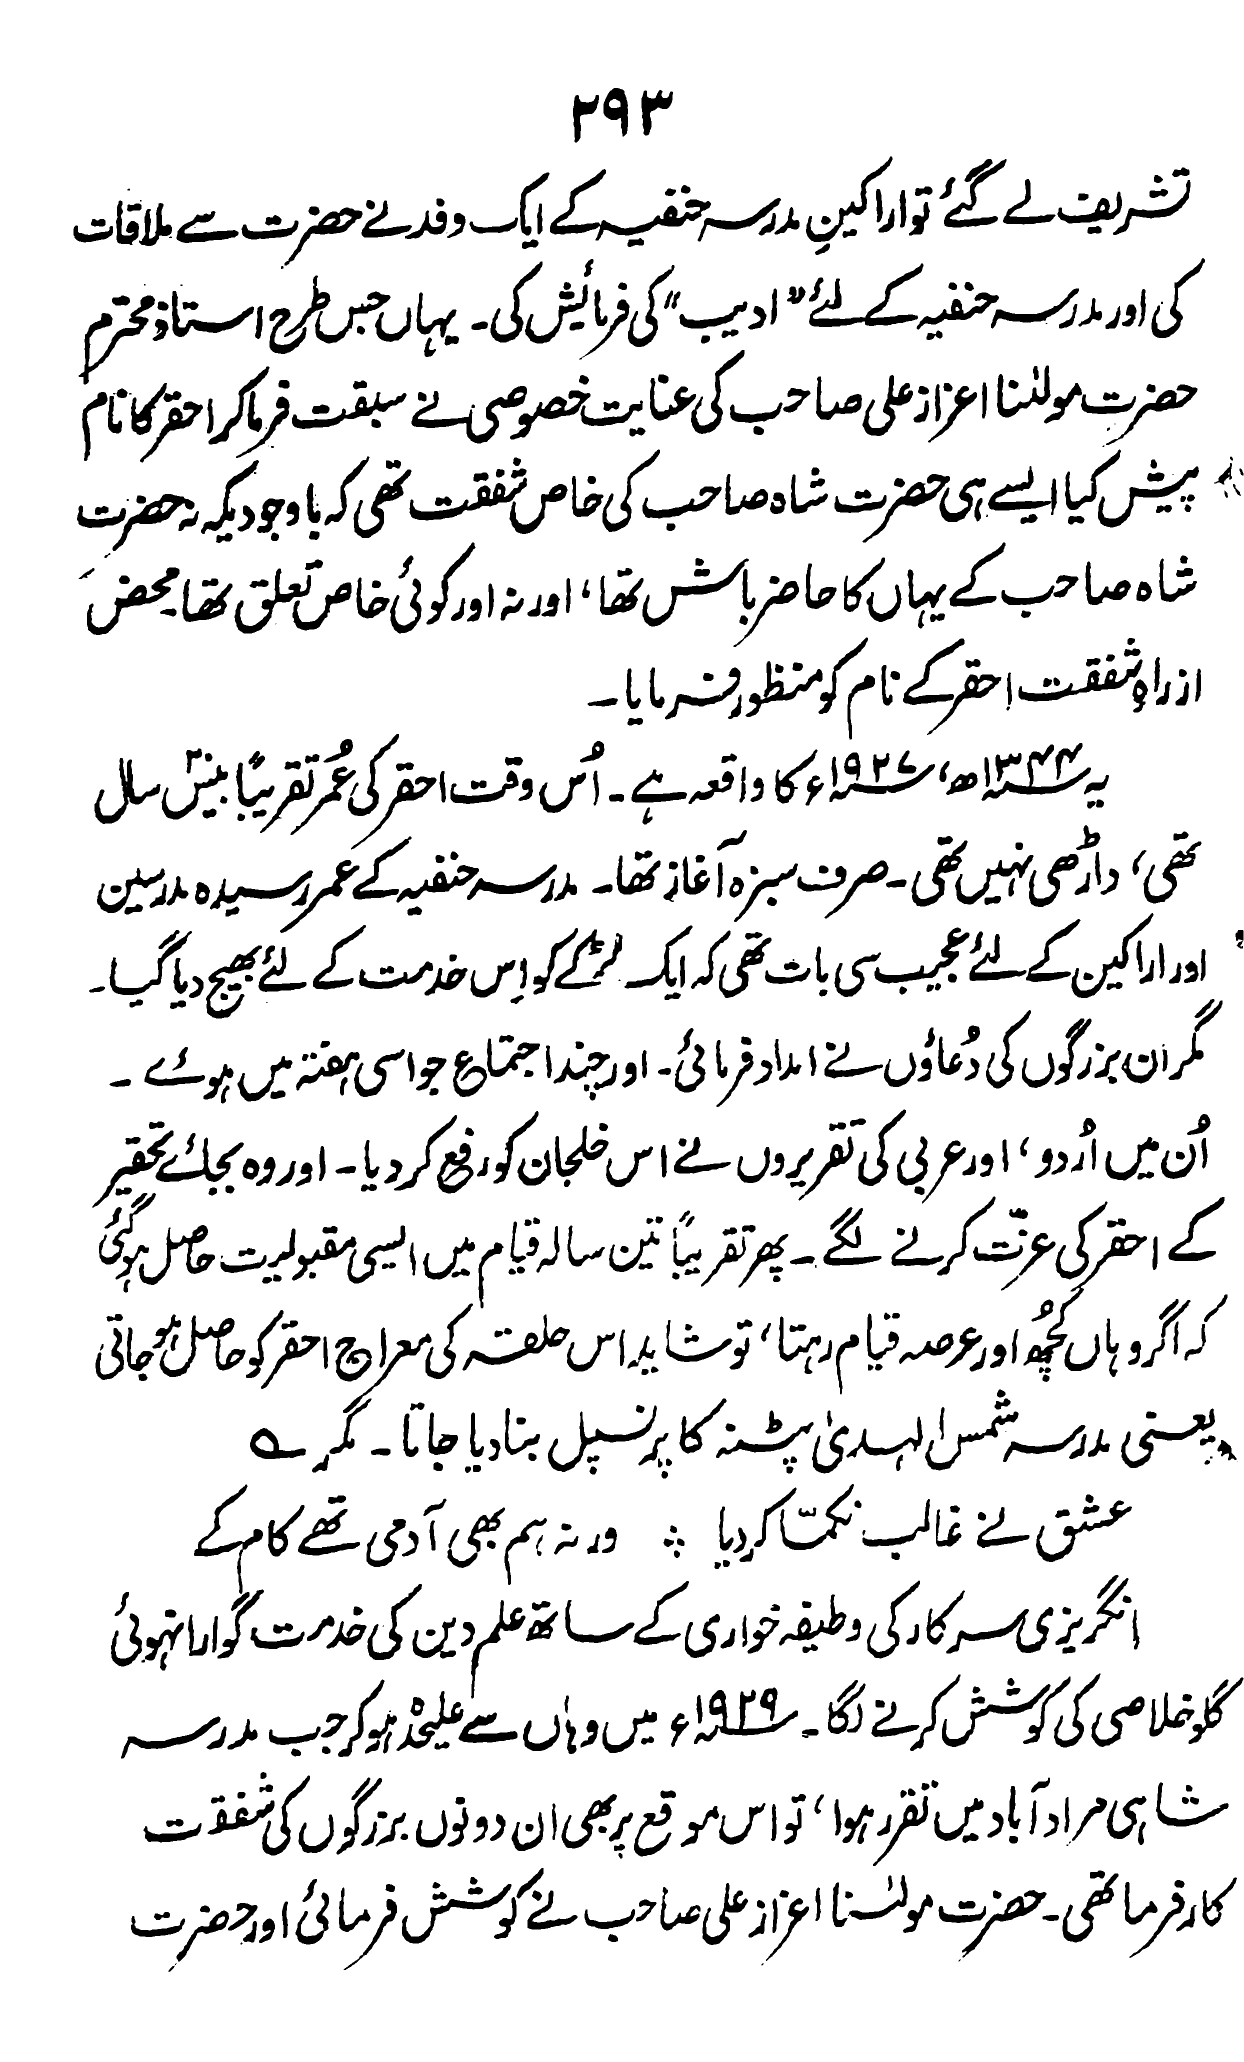 ۲۹۳
تشریف لے گئے تو اراکینِ مدرسہ حنفیہ کے ایک وفد نے حضرت سے ملاقات
کی اور مدرسہ حنفیہ کے لئے "ادیب" کی فرمائیش کی۔ یہاں جس طرح استاذ محترم
حضرت مولٰنا اعزاز علی صاحب کی عنایت خصوصی نے سبقت فرماکر احقر کا نام
پیش کیا ایسے ہی حضرت شاہ صاحب کی خاص شفقت تھی کہ باوجودیکہ نہ حضرت
شاہ صاحب کے یہاں کا حاضر باش تھا، اور نہ اور کوئی خاص تعلق تھا۔ محض
از راہِ شفقت احقر کے نام کو منظور فرمایا۔
یہ ۱۳۴۴ھ، ۱۹۲۷ء کا واقعہ ہے۔ اُس وقت احقر کی عُمر تقریبًا بیس۲۰ سال
تھی، داڑھی نہیں تھی۔ صرف سبزہ آغاز تھا۔ مدرسہ حنفیہ کے عمر رسیدہ مدرسین
اور اراکین کے لئے عجیب سی بات تھی کہ ایک لڑکے کو اِس خدمت کے لئے بھیج دیا گیا۔
مگر ان بزرگوں کی دُعاؤں نے امداد فرمائی۔ اور چند اجتماع جو اسی ہفتہ میں ہوئے ۔
اُن میں اُردو، اور عربی کی تقریروں نے اس خلجان کو رفع کر دیا۔ اور وہ بجائے تحقیر
کے احقر کی عزّت کرنے لگے۔ پھر تقریباً تین سالہ قیام میں ایسی مقبولیت حاصل ہوگئی
کہ اگر وہاں کُچھ اور عرصہ قیام رہتا، تو شاید اس حلقہ کی معراج احقر کو حاصل ہوجاتی
یعنی مدرسہ شمس الہدیٰ پٹنہ کا پرنسپل بنادیا جاتا۔ مگر ؎
عشق نے غالب نکمّا کردیا ؞ ورنہ ہم بھی آدمی تھے کام کے
انگریزی سرکار کی وظیفہ خواری کے ساتھ علم دین کی خدمت گوارا نہوئی
گلو خلاصی کی کوشش کرنے لگا۔ ۱۹۲۹ء میں وہاں سے علیٰحدہ ہوکر جب مدرسہ
شاہی مراد آباد میں تقرر ہوا، تو اس موقع پر بھی ان دونوں بزرگوں کی شفقت
کارفرما تھی۔ حضرت مولٰنا اعزاز علی صاحب نے کوشش فرمائی اور حضرت